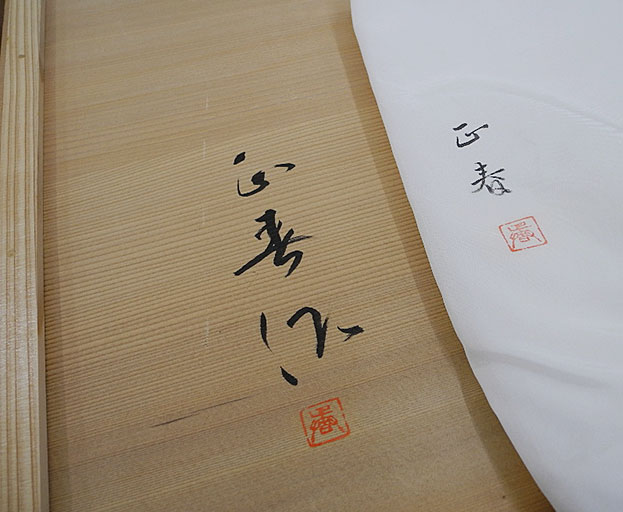 正春作
正春